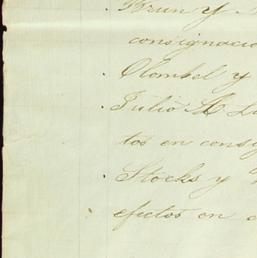 Brun y
consignacio
Clombel y
Julio M. Lu
tos en consig
Stocks y
efectos en c